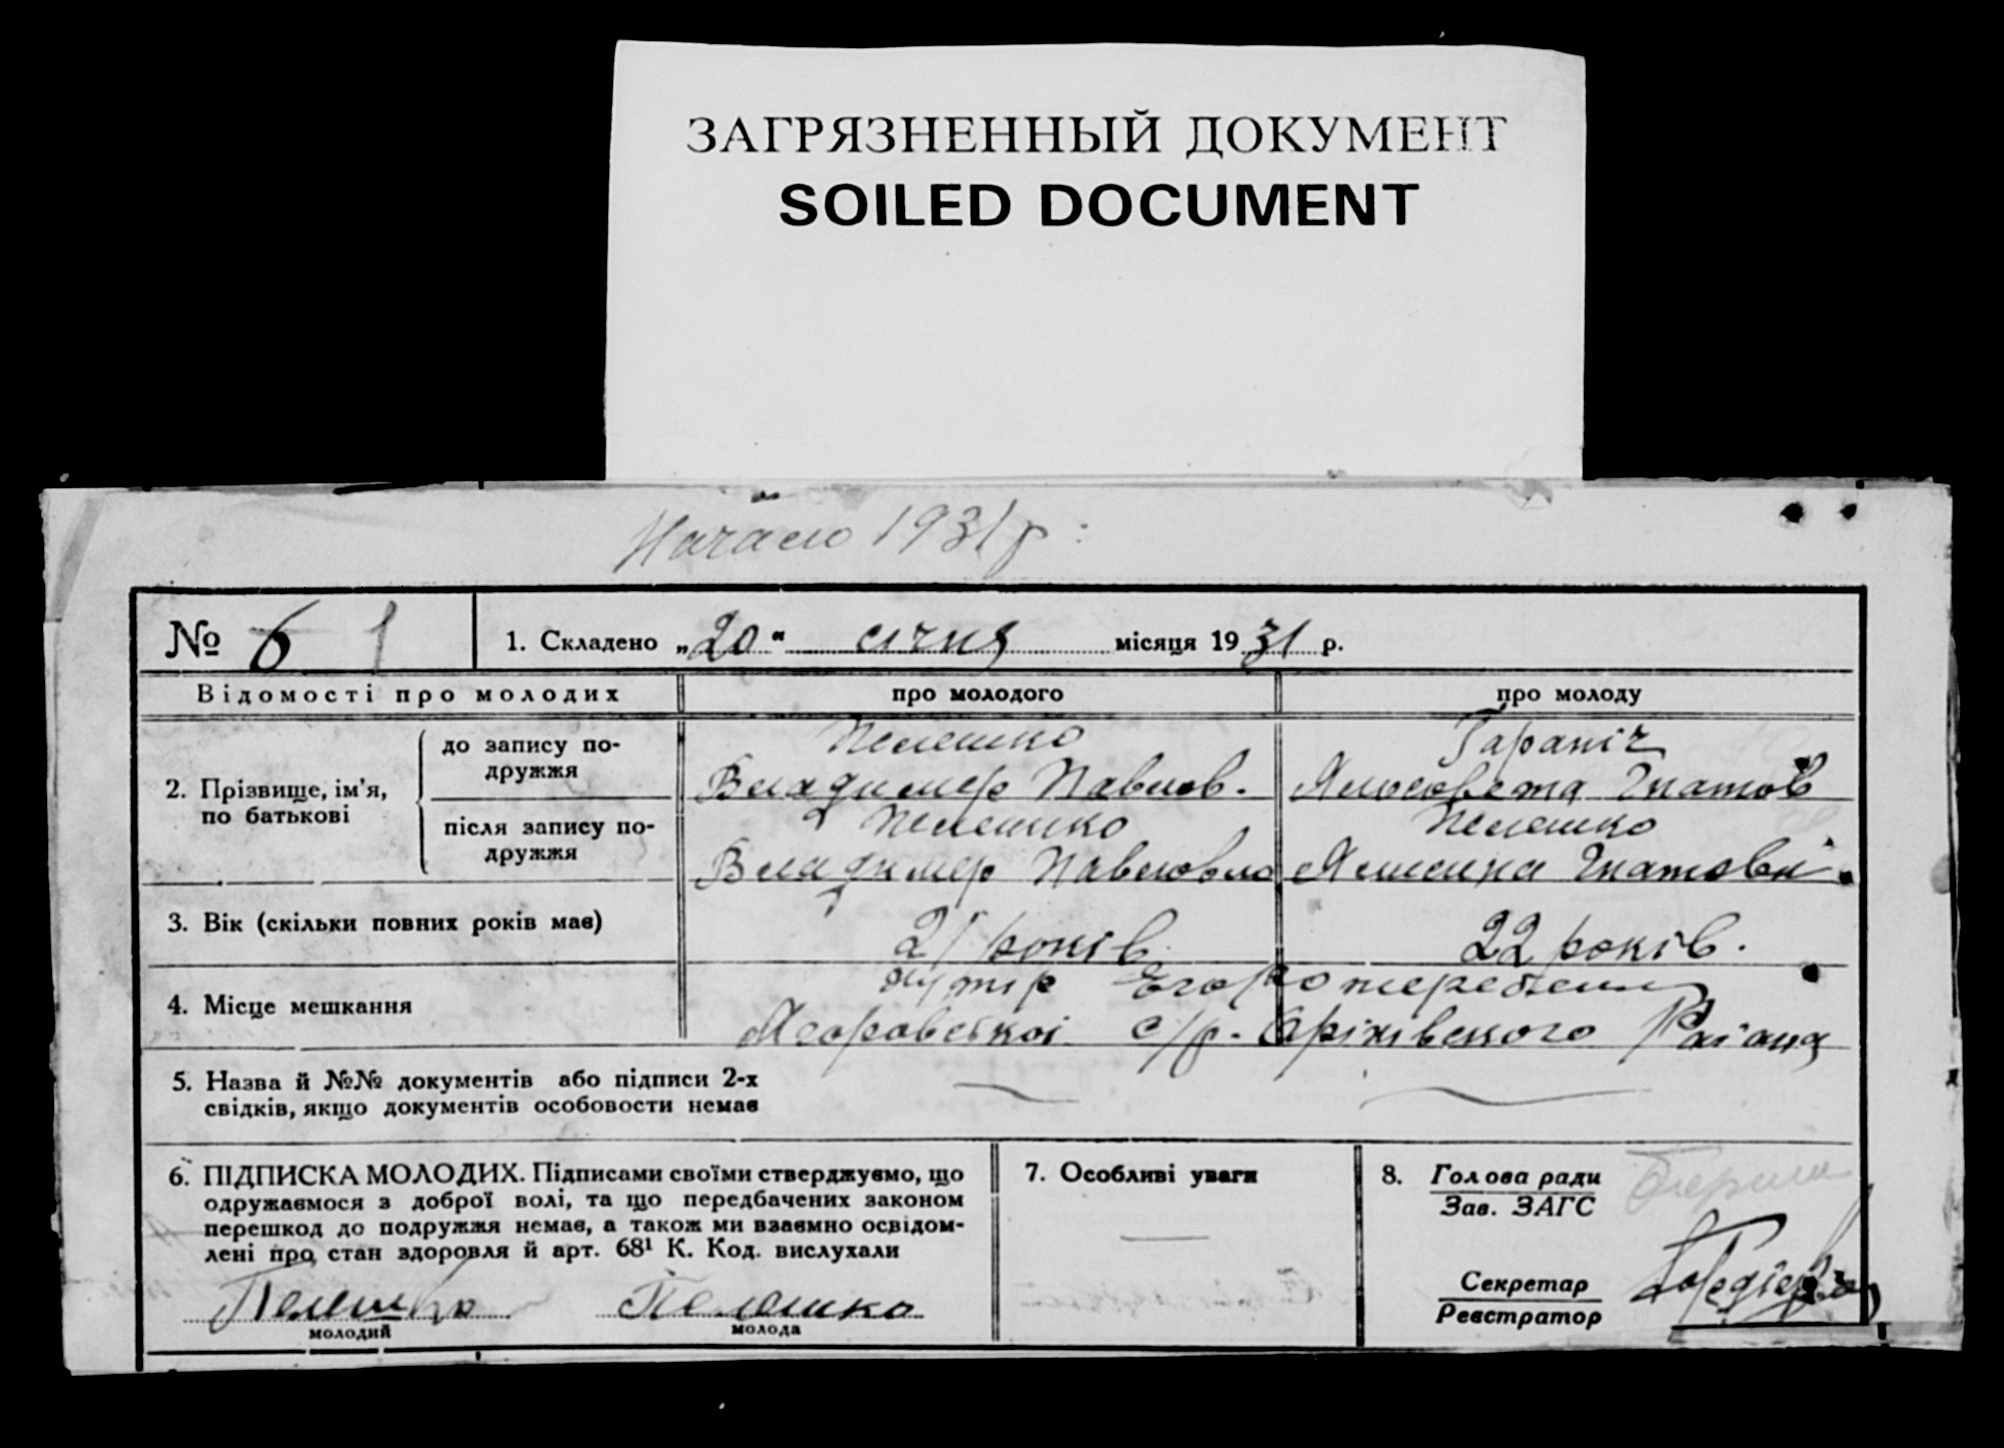 ЗАГРЯЗНЕННЫЙ ДОКУМЕНТ
SOILED DOCUMENT
Начало 1931 р:
№ 6 1
1. Складено „20“ січня місяця 1931 р.
Відомості про молодих
про молодого
про молоду
2. Прізвище, ім'я, по батькові
до запису подружжя
Пелешко
Владимер Павлов.
Гараніч
Гнатов
після запису подружжя
Пелешко
Владимер
Пелешко
Гнатовн.
3. Вік (скільки повних років має)
21 років.
22 років.
4. Місце мешкання
хутір
с/р. Оріхівського Раіона
5. Назва й №№ документів або підписи 2-х
свідків, якщо документів особовости немає
6. ПІДПИСКА МОЛОДИХ. Підписами своїми стверджуємо, що
одружаємося з доброї волі, та що передбачених законом
перешкод до подружжя немає, а також ми взаємно освідом-
лені про стан здоровля й арт. 68¹ К. Код. вислухали
Пелешко
молодий
Пелешко
молода
7. Особливі уваги
8. Голова ради
Зав. ЗАГС
Секретар
Реєстратор